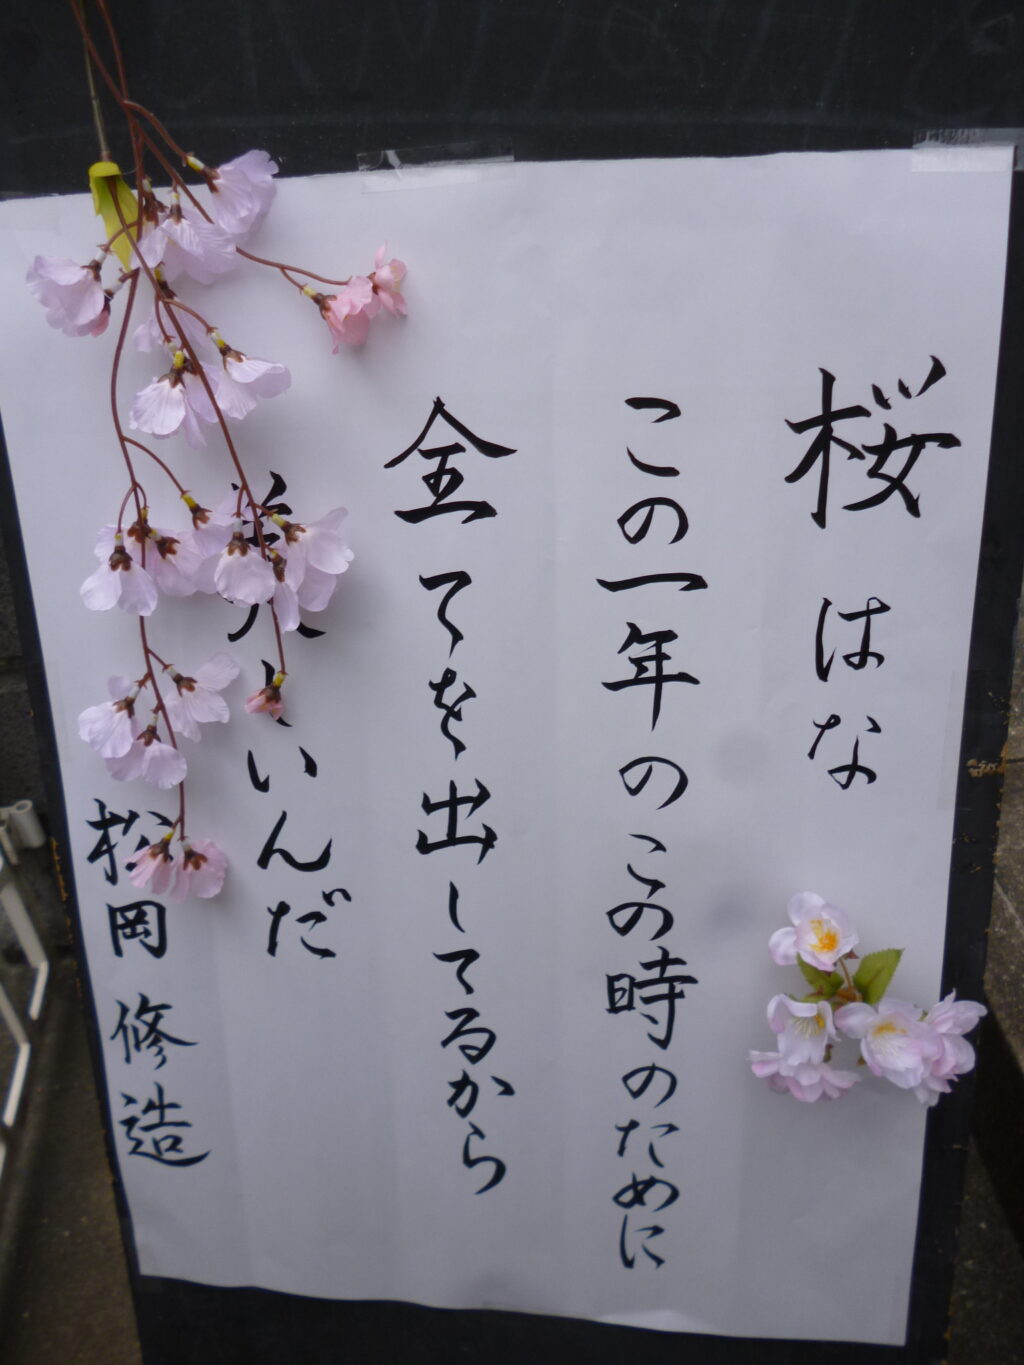 桜はな
この一年のこの時のために
全てを出してるから
美しいんだ
松岡修造